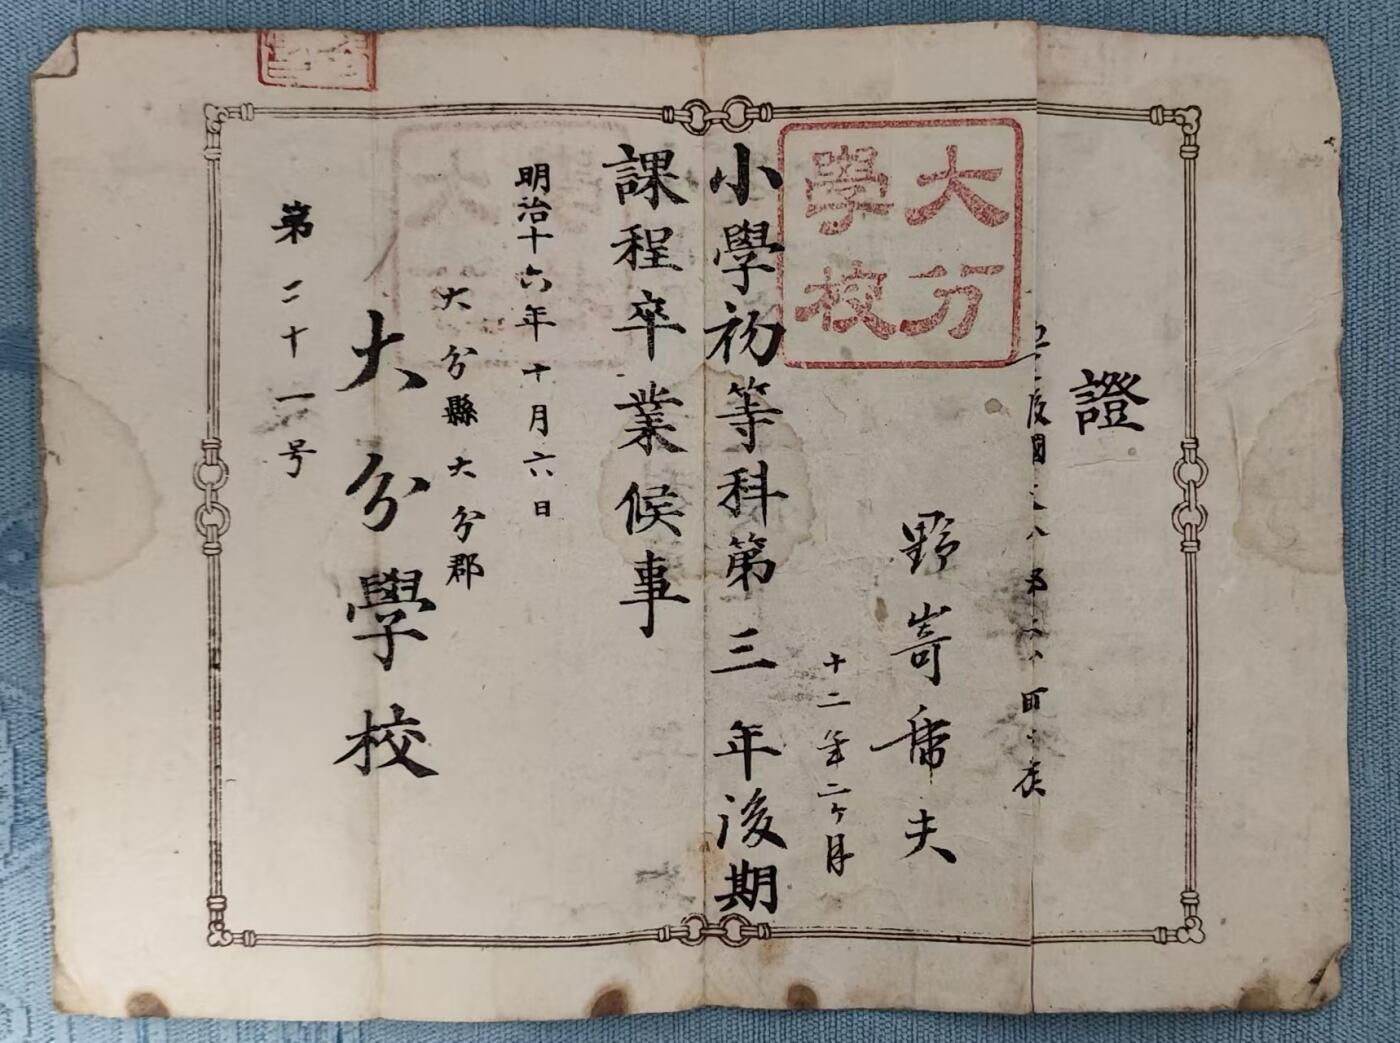 證
大分
學校
野嵜
夫
十二年二ケ月
小學初等科第三年後期
課程卒業候事
明治十六年十月六日
大分縣大分郡
大分學校
第二十一号